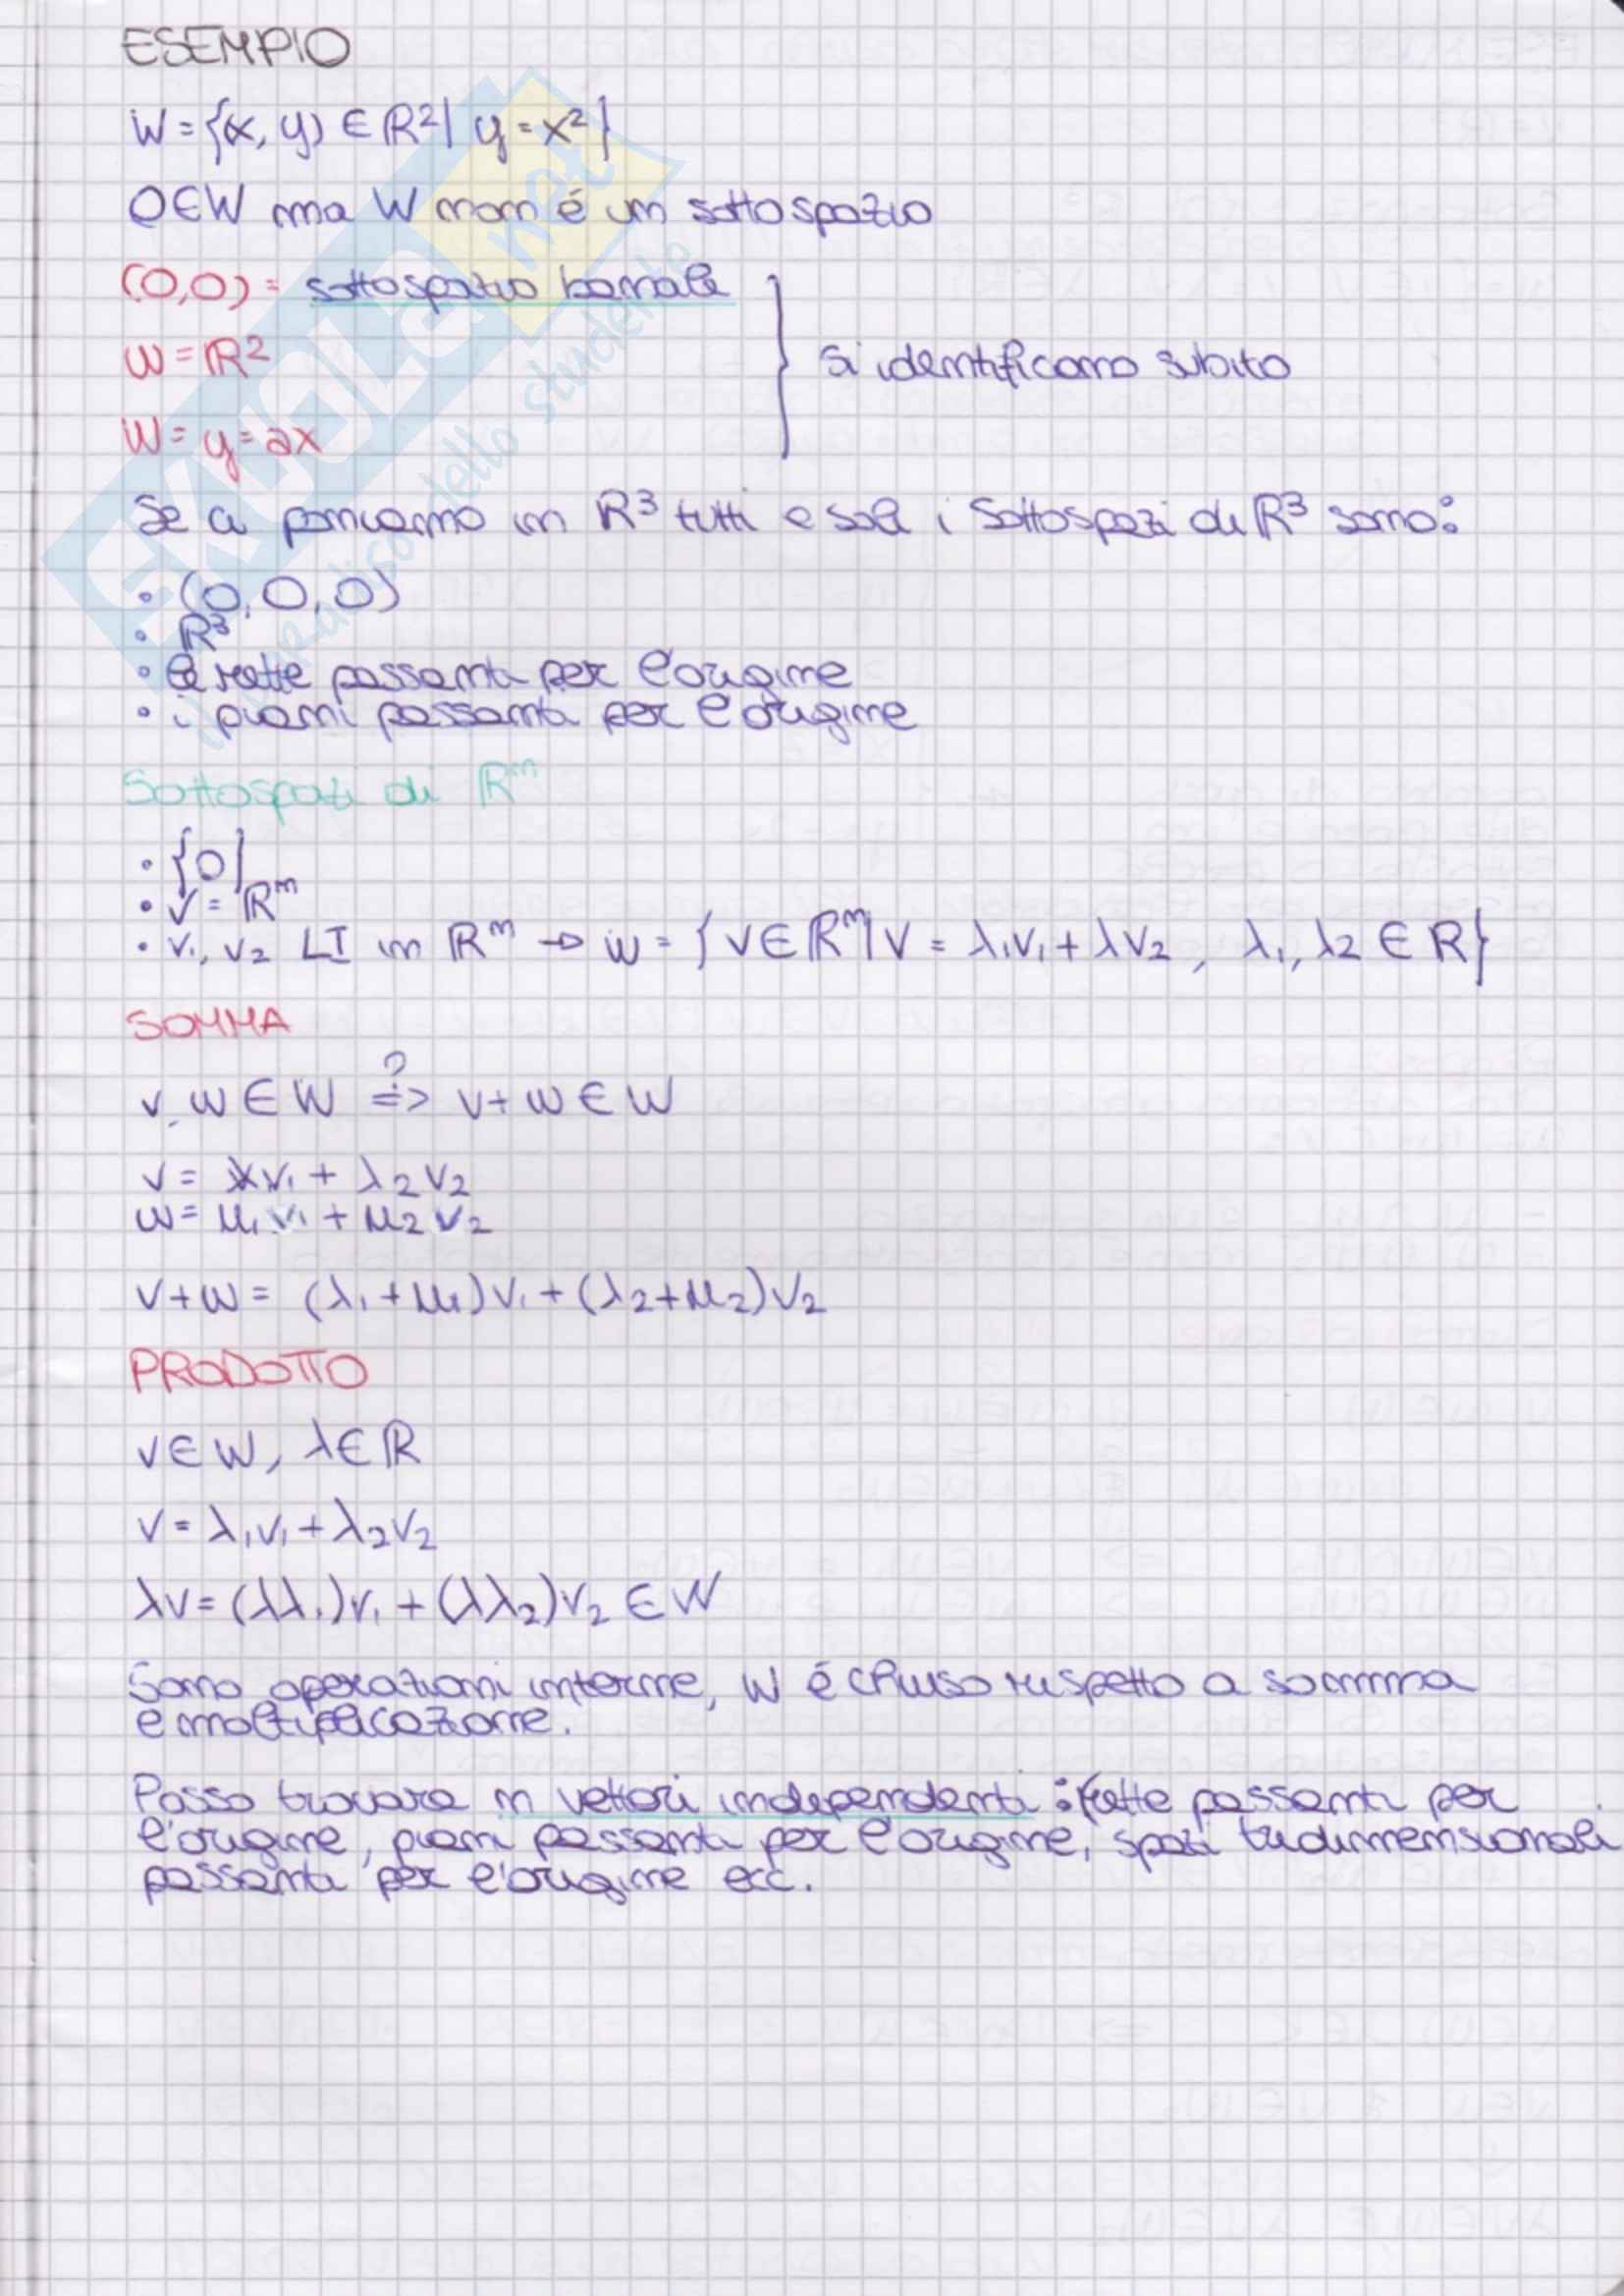 ESEMPIO
W = {(x, y) ∈ ℝ² | y = x²}
O∈W ma W non é un sottospazio
(0,0) = sottospazio banale
W = ℝ²
si identificano subito
W = y = ax
Se ci poniamo in ℝ³ tutti e soli i Sottospazi di ℝ³ sono:
• (0,0,0)
• ℝ³
• le rette passanti per l'origine
• i piani passanti per l'origine
Sottospazi di ℝⁿ
• {0}
• V = ℝⁿ
• v₁, v₂ LI in ℝⁿ → W = {v∈ℝⁿ | v = λ₁v₁ + λv₂, λ₁, λ₂ ∈ R}
SOMMA
v, w ∈ W ?=> v+w ∈ W
v = λv₁ + λ₂v₂
w = μ₁v₁ + μ₂v₂
v+w = (λ₁+μ₁)v₁ + (λ₂+μ₂)v₂
PRODOTTO
v∈W, λ∈ℝ
v = λ₁v₁ + λ₂v₂
λv = (λλ₁)v₁ + (λλ₂)v₂ ∈ W
Sono operazioni interne, W é chiuso rispetto a somma
e moltiplicazione.
Posso trovare n vettori independenti : rette passanti per
l'origine, piani passanti per l'origine, spazi tridimensionali
passanti per l'origine ecc.
SKUOLA.net
dello studente